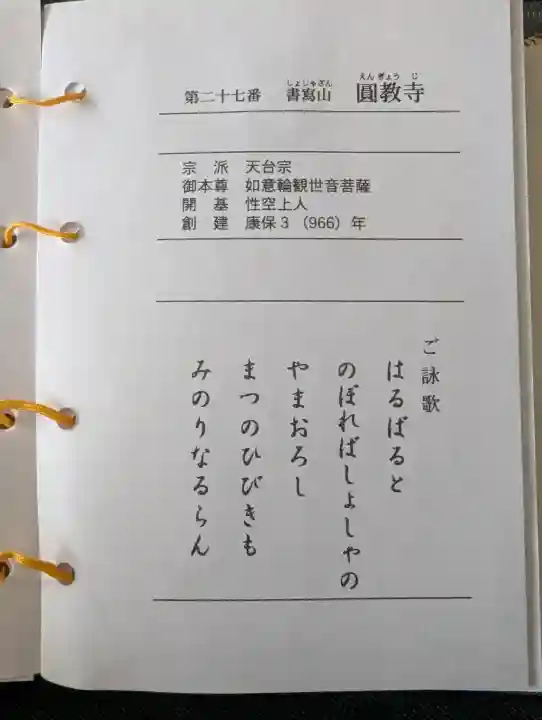 第二十七番 書寫山 圓教寺
しょしゃざん えんぎょうじ
宗　派　天台宗
御本尊　如意輪観世音菩薩
開　基　性空上人
創　建　康保3（966）年
ご詠歌
はるばると
のぼればしょしゃの
やまおろし
まつのひびきも
みのりなるらん